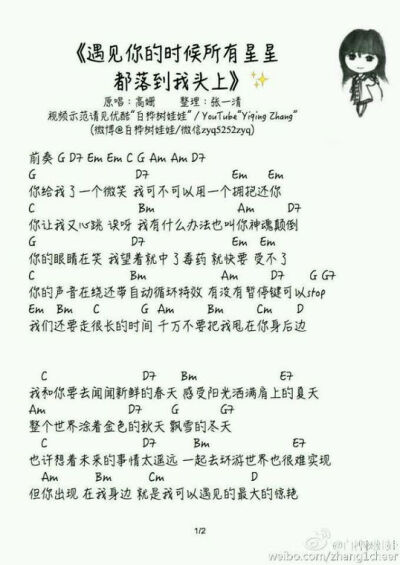 《遇见你的时候所有星星
都落到我头上》
原唱:高姗 整理:张一清
视频示范请见优酷"白桦树娃娃" / YouTube"Yiqing Zhang"
(微博@白桦树娃娃/微信zyq5252zyq)
前奏 G D7 Em Em C G Am Am D7
G D7 Em Em
你给我了一个微笑 我可不可以用一个拥抱还你
C Bm Am D7
你让我又心跳 诶呀 我有什么办法也叫你神魂颠倒
G D7 Em Em
你的眼睛在笑 我望着就中了毒药 就快要 受不了
C Bm Am D7 G G7
你的声音在绕还带自动循环特效 有没有暂停键可以stop
Em Bm C G Am Bm Cm D
我们还要走很长的时间 千万不要把我甩在你身后边
C D7 Bm E7
我和你要去闻闻新鲜的春天 感受阳光洒满肩上的夏天
Am D7 G G7
整个世界涂着金色的秋天 飘雪的冬天
C D7 Bm E7
也许想着未来的事情太遥远 一起去环游世界也很难实现
Am Bm Cm D
但你出现 在我身边 就是我可以遇见的最大的惊艳
1/2
weibo.com/zhang1cheer